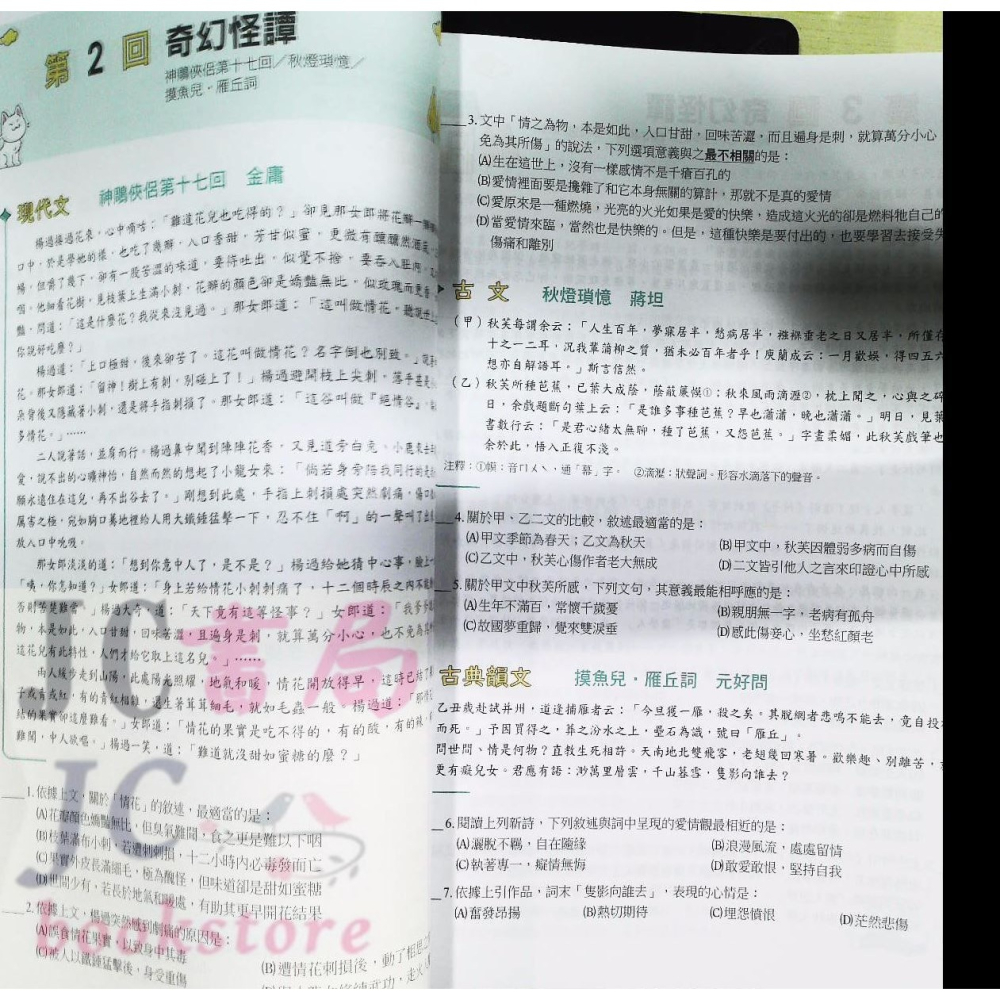 第2回 奇幻怪譚
神鵰俠侶第十七回／秋燈瑣憶／
摸魚兒・雁丘詞
現代文 神鵰俠侶第十七回 金庸
楊過接過花來，心中嘀咕：「難道花兒也吃得的？」卻見那女郎將花瓣一瓣
口中，於是學她的樣，也吃了幾瓣，入口香甜，芳甘似蜜，更微有醺醺然酒氣，
暢，但嚼了幾下，卻有一股苦澀的味道，要待吐出，似覺不捨，要吞入肚內，
咽。他細看花樹，見枝葉上生滿小刺，花瓣的顏色卻是嬌豔無比，似玫瑰而更香
豔，問道：「這是什麼花？我從來沒見過。」那女郎道：「這叫做情花，聽說世上
你說好吃麼？」
楊過道：「上口極甜，後來卻苦了。這花叫做情花？名字倒也別致。」說著
花。那女郎道：「留神！樹上有刺，別碰上了！」楊過避開枝上尖刺，落手甚是
朵背後又隱藏著小刺，還是將手指刺損了。那女郎道：「這谷叫做『絕情谷』，
多情花。」……
二人說著話，並肩而行。楊過鼻中聞到陣陣花香，又見道旁白兔、小鹿
愛，說不出的心曠神怡，自然而然的想起了小龍女來：「倘若身旁陪我同行的是
願永遠住在這兒，再不出谷去了。」剛想到此處，手指上刺損處突然劇痛，傷口
厲害之極，宛如胸口驀地裡給人用大鐵錘猛擊一下，忍不住「啊」的一聲叫了出
放入口中吮吸。
那女郎淡淡的道：「想到你意中人了，是不是？」楊過給她猜中心事，臉上
「咦，你怎知道？」女郎道：「身上若給情花小刺刺痛了，十二個時辰之內不能
否則苦楚難當。」楊過大奇，道：「天下竟有這等怪事？」女郎道：「我爹爹
物，本是如此，入口甘甜，回味苦澀，且遍身是刺，就算萬分小心，也不免為
這花兒有此特性，人們才給它取上這名兒。」……
兩人緩步走到山陽，此處陽光照耀，地氣和暖，情花開放得早，這時已結了
子或青或紅，有的青紅相雜，還生著茸茸細毛，就如毛蟲一般。楊過道：「那
結的果實卻這麼難看。」女郎道：「情花的果實是吃不得的，有的酸，有的辣，
難聞，中人欲嘔。」楊過一笑，道：「難道就沒甜如蜜糖的麼？」
1. 依據上文，關於「情花」的敘述，最適當的是：
(A)花瓣顏色嬌豔無比，但臭氣難聞，食之更是難以下咽
(B)枝葉滿布小刺，若遭刺刺損，十二小時內必毒發而亡
(C)果實外皮長滿細毛，極為醜怪，但味道卻是甜如蜜糖
(D)世間少有，若長於地氣和暖處，有助其更早開花結果
2. 依據上文，楊過突然感到劇痛的原因是：
(A)誤食情花果實，以致身中其毒
(B)遭情花刺損後，動了相思之
(C)被人以鐵錘猛擊後，身受重傷
JC書局
JC
bookstore
3. 文中「情之為物，本是如此，入口甘甜，回味苦澀，而且遍身是刺，就算萬分小心
免為其所傷」的說法，下列選項意義與之最不相關的是：
(A)生在這世上，沒有一樣感情不是千瘡百孔的
(B)愛情裡面要是攙雜了和它本身無關的算計，那就不是真的愛情
(C)愛原來是一種燃燒，光亮的火光如果是愛的快樂，造成這火光的卻是燃料牠自己的
(D)當愛情來臨，當然也是快樂的。但是，這種快樂是要付出的，也要學習去接受失
傷痛和離別
古文 秋燈瑣憶 蔣坦
（甲）秋芙每謂余云：「人生百年，夢寐居半，愁病居半，襁褓垂老之日又居半，所僅存
十之一二耳，況我輩蒲柳之質，猶未必百年者乎！庾蘭成云：一月歡娛，得四五六
想亦自解語耳。」斯言信然。
（乙）秋芙所種芭蕉，已葉大成蔭，蔭蔽簾幙①；秋來風雨滴瀝②，枕上聞之，心與之碎
日，余戲題斷句葉上云：「是誰多事種芭蕉？早也瀟瀟，晚也瀟瀟。」明日，見葉
書數行云：「是君心緒太無聊，種了芭蕉，又怨芭蕉。」字畫柔媚，此秋芙戲筆也
余於此，悟入正復不淺。
注釋：①幙：音ㄇㄨˋ，通「幕」字。 ②滴瀝：狀聲詞。形容水滴落下的聲音。
4. 關於甲、乙二文的比較，敘述最適當的是：
(A)甲文季節為春天；乙文為秋天 (B)甲文中，秋芙因體弱多病而自傷
(C)乙文中，秋芙心傷作者老大無成 (D)二文皆引他人之言來印證心中所感
5. 關於甲文中秋芙所感，下列文句，其意義最能相呼應的是：
(A)生年不滿百，常懷千歲憂 (B)親朋無一字，老病有孤舟
(C)故國夢重歸，覺來雙淚垂 (D)感此傷妾心，坐愁紅顏老
古典韻文 摸魚兒・雁丘詞 元好問
乙丑歲赴試并州，道逢捕雁者云：「今旦獲一雁，殺之矣。其脫網者悲鳴不能去，竟自投
而死。」予因買得之，葬之汾水之上，壘石為識，號曰「雁丘」。
問世間、情是何物？直教生死相許。天南地北雙飛客，老翅幾回寒暑。歡樂趣、別離苦，
更有癡兒女。君應有語：渺萬里層雲，千山暮雪，隻影向誰去？
6. 閱讀上列新詩，下列敘述與詞中呈現的愛情觀最相近的是：
(A)灑脫不羈，自在隨緣 (B)浪漫風流，處處留情
(C)執著專一，癡情無悔 (D)敢愛敢恨，堅持自我
7. 依據上引作品，詞末「隻影向誰去」，表現的心情是：
(A)奮發昂揚 (B)熱切期待 (C)埋怨憤恨 (D)茫然悲傷